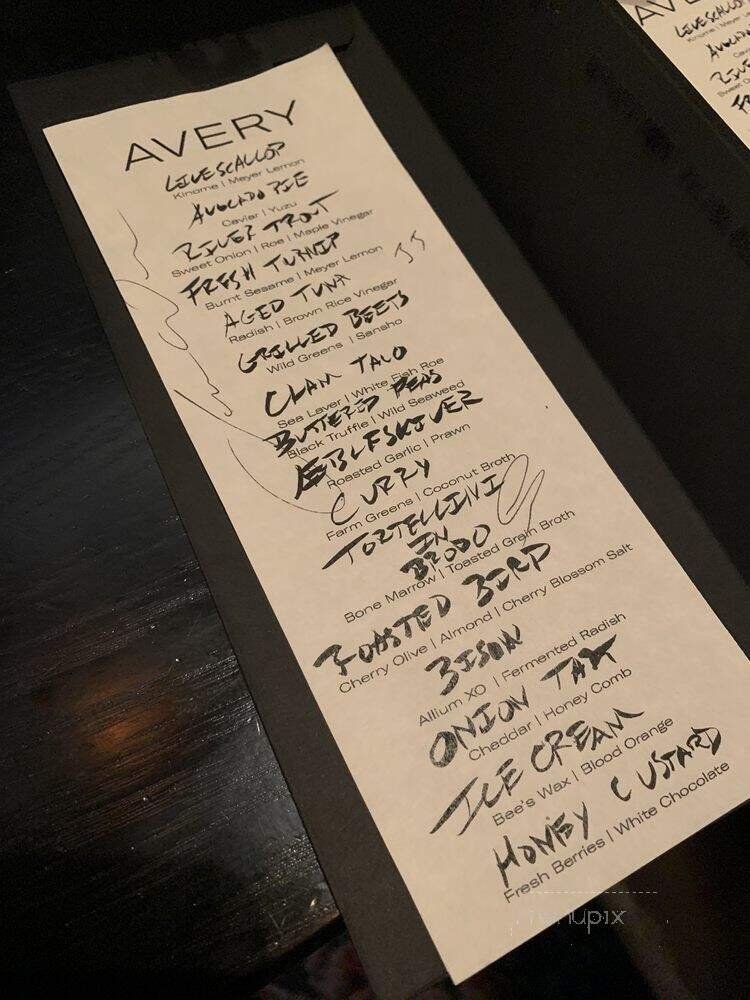 AVERY
LIVE SCALLOP
Kinome | Meyer Lemon
AVOCADO PIE
Caviar | Yuzu
RIVER TROUT
Sweet Onion | Roe | Maple Vinegar
FRESH TURNIP
Burnt Sesame | Meyer Lemon
AGED TUNA
Radish | Brown Rice Vinegar
GRILLED BEETS
Wild Greens | Sansho
CLAM TACO
Sea Laver | White Fish Roe
BUTTERED PEAS
Black Truffle | Wild Seaweed
ÆBLESKIVER
Roasted Garlic | Prawn
CURRY
Farm Greens | Coconut Broth
TORTELLINI
IN
BRODO
Bone Marrow | Toasted Grain Broth
ROASTED BIRD
Cherry Olive | Almond | Cherry Blossom Salt
BISON
Allium XO | Fermented Radish
ONION TART
Cheddar | Honey Comb
ICE CREAM
Bee's Wax | Blood Orange
HONEY CUSTARD
Fresh Berries | White Chocolate
AV
LIVE SCALLOP
Kinome | Meyer
AVOCADO
Cavi
RIVE
Sweet On
FR